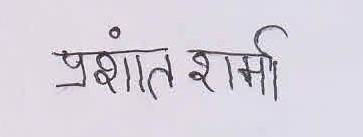 प्रशांत शर्मा